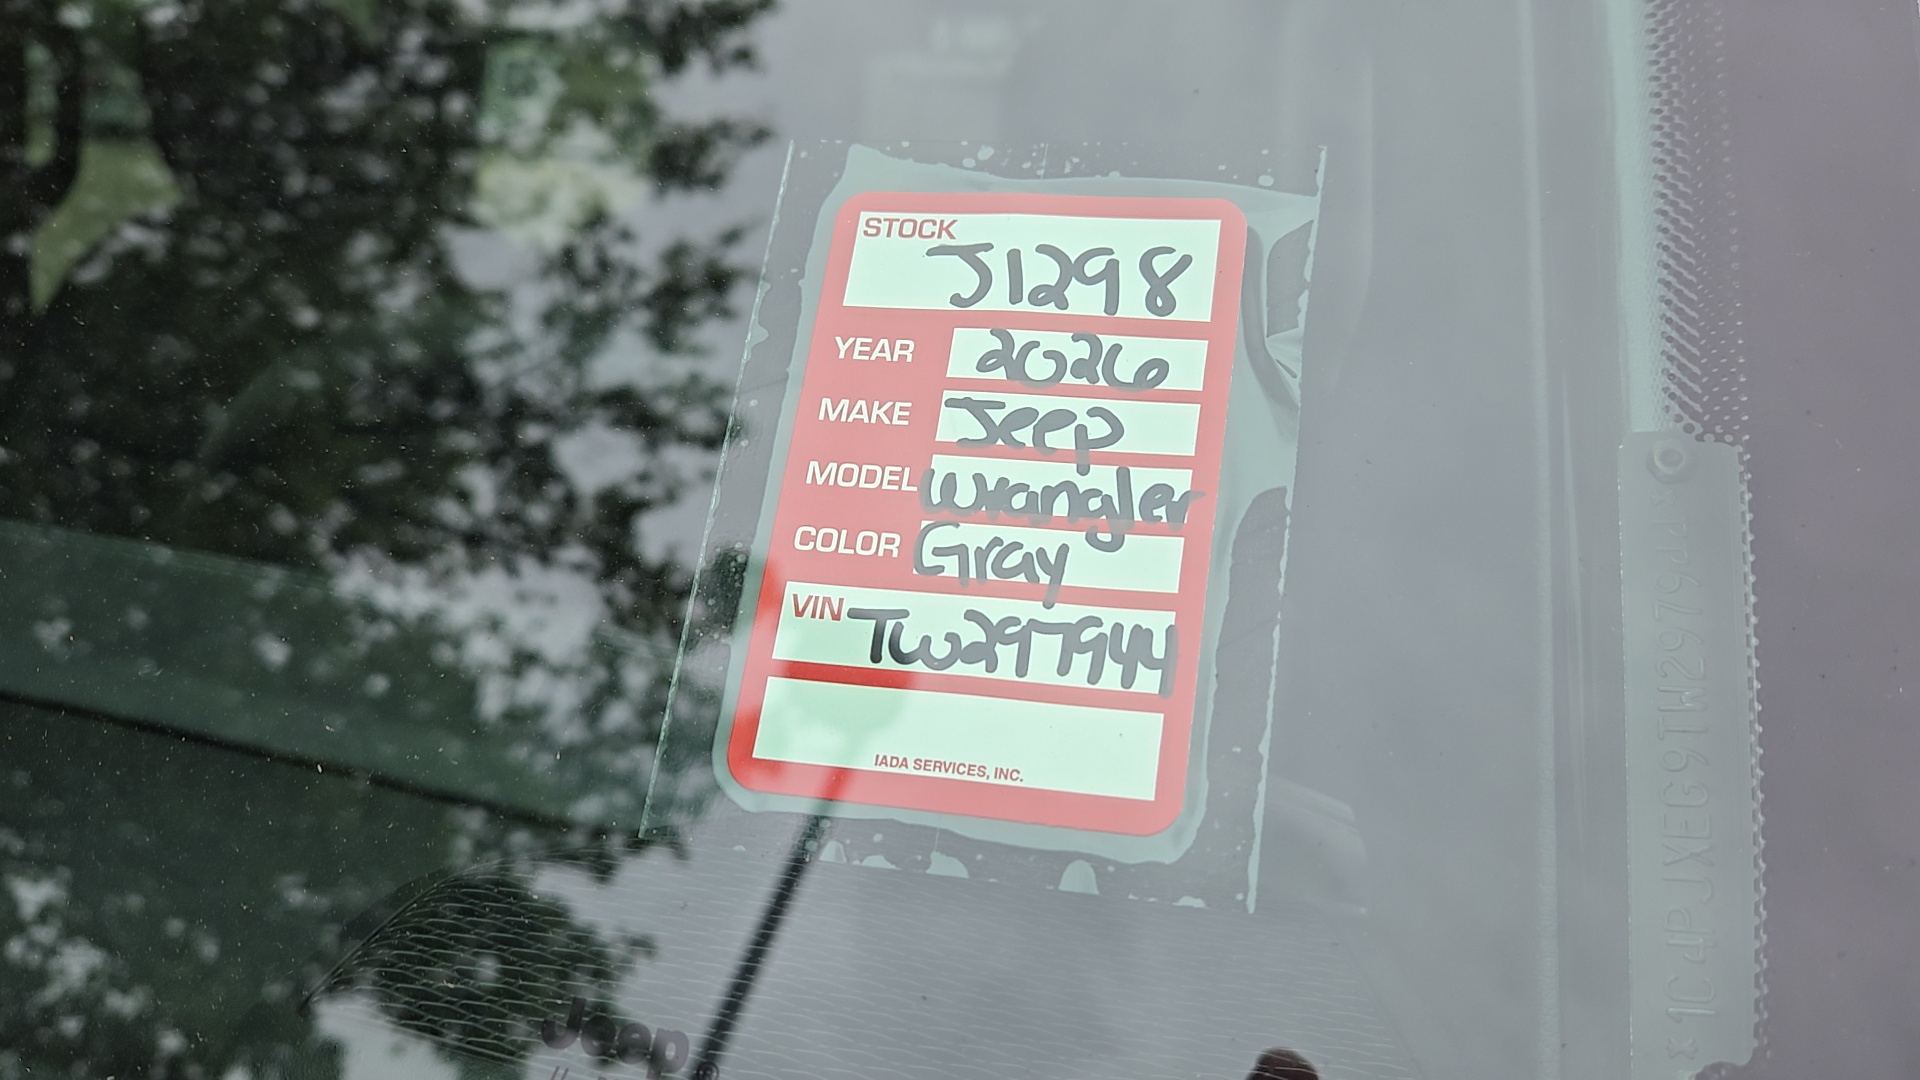 STOCK J1298
YEAR 2026
MAKE Jeep
MODEL Wrangler
COLOR Gray
VIN TW297944
IADA SERVICES, INC.
Jeep®
*1C4PJXEG9TW297944*